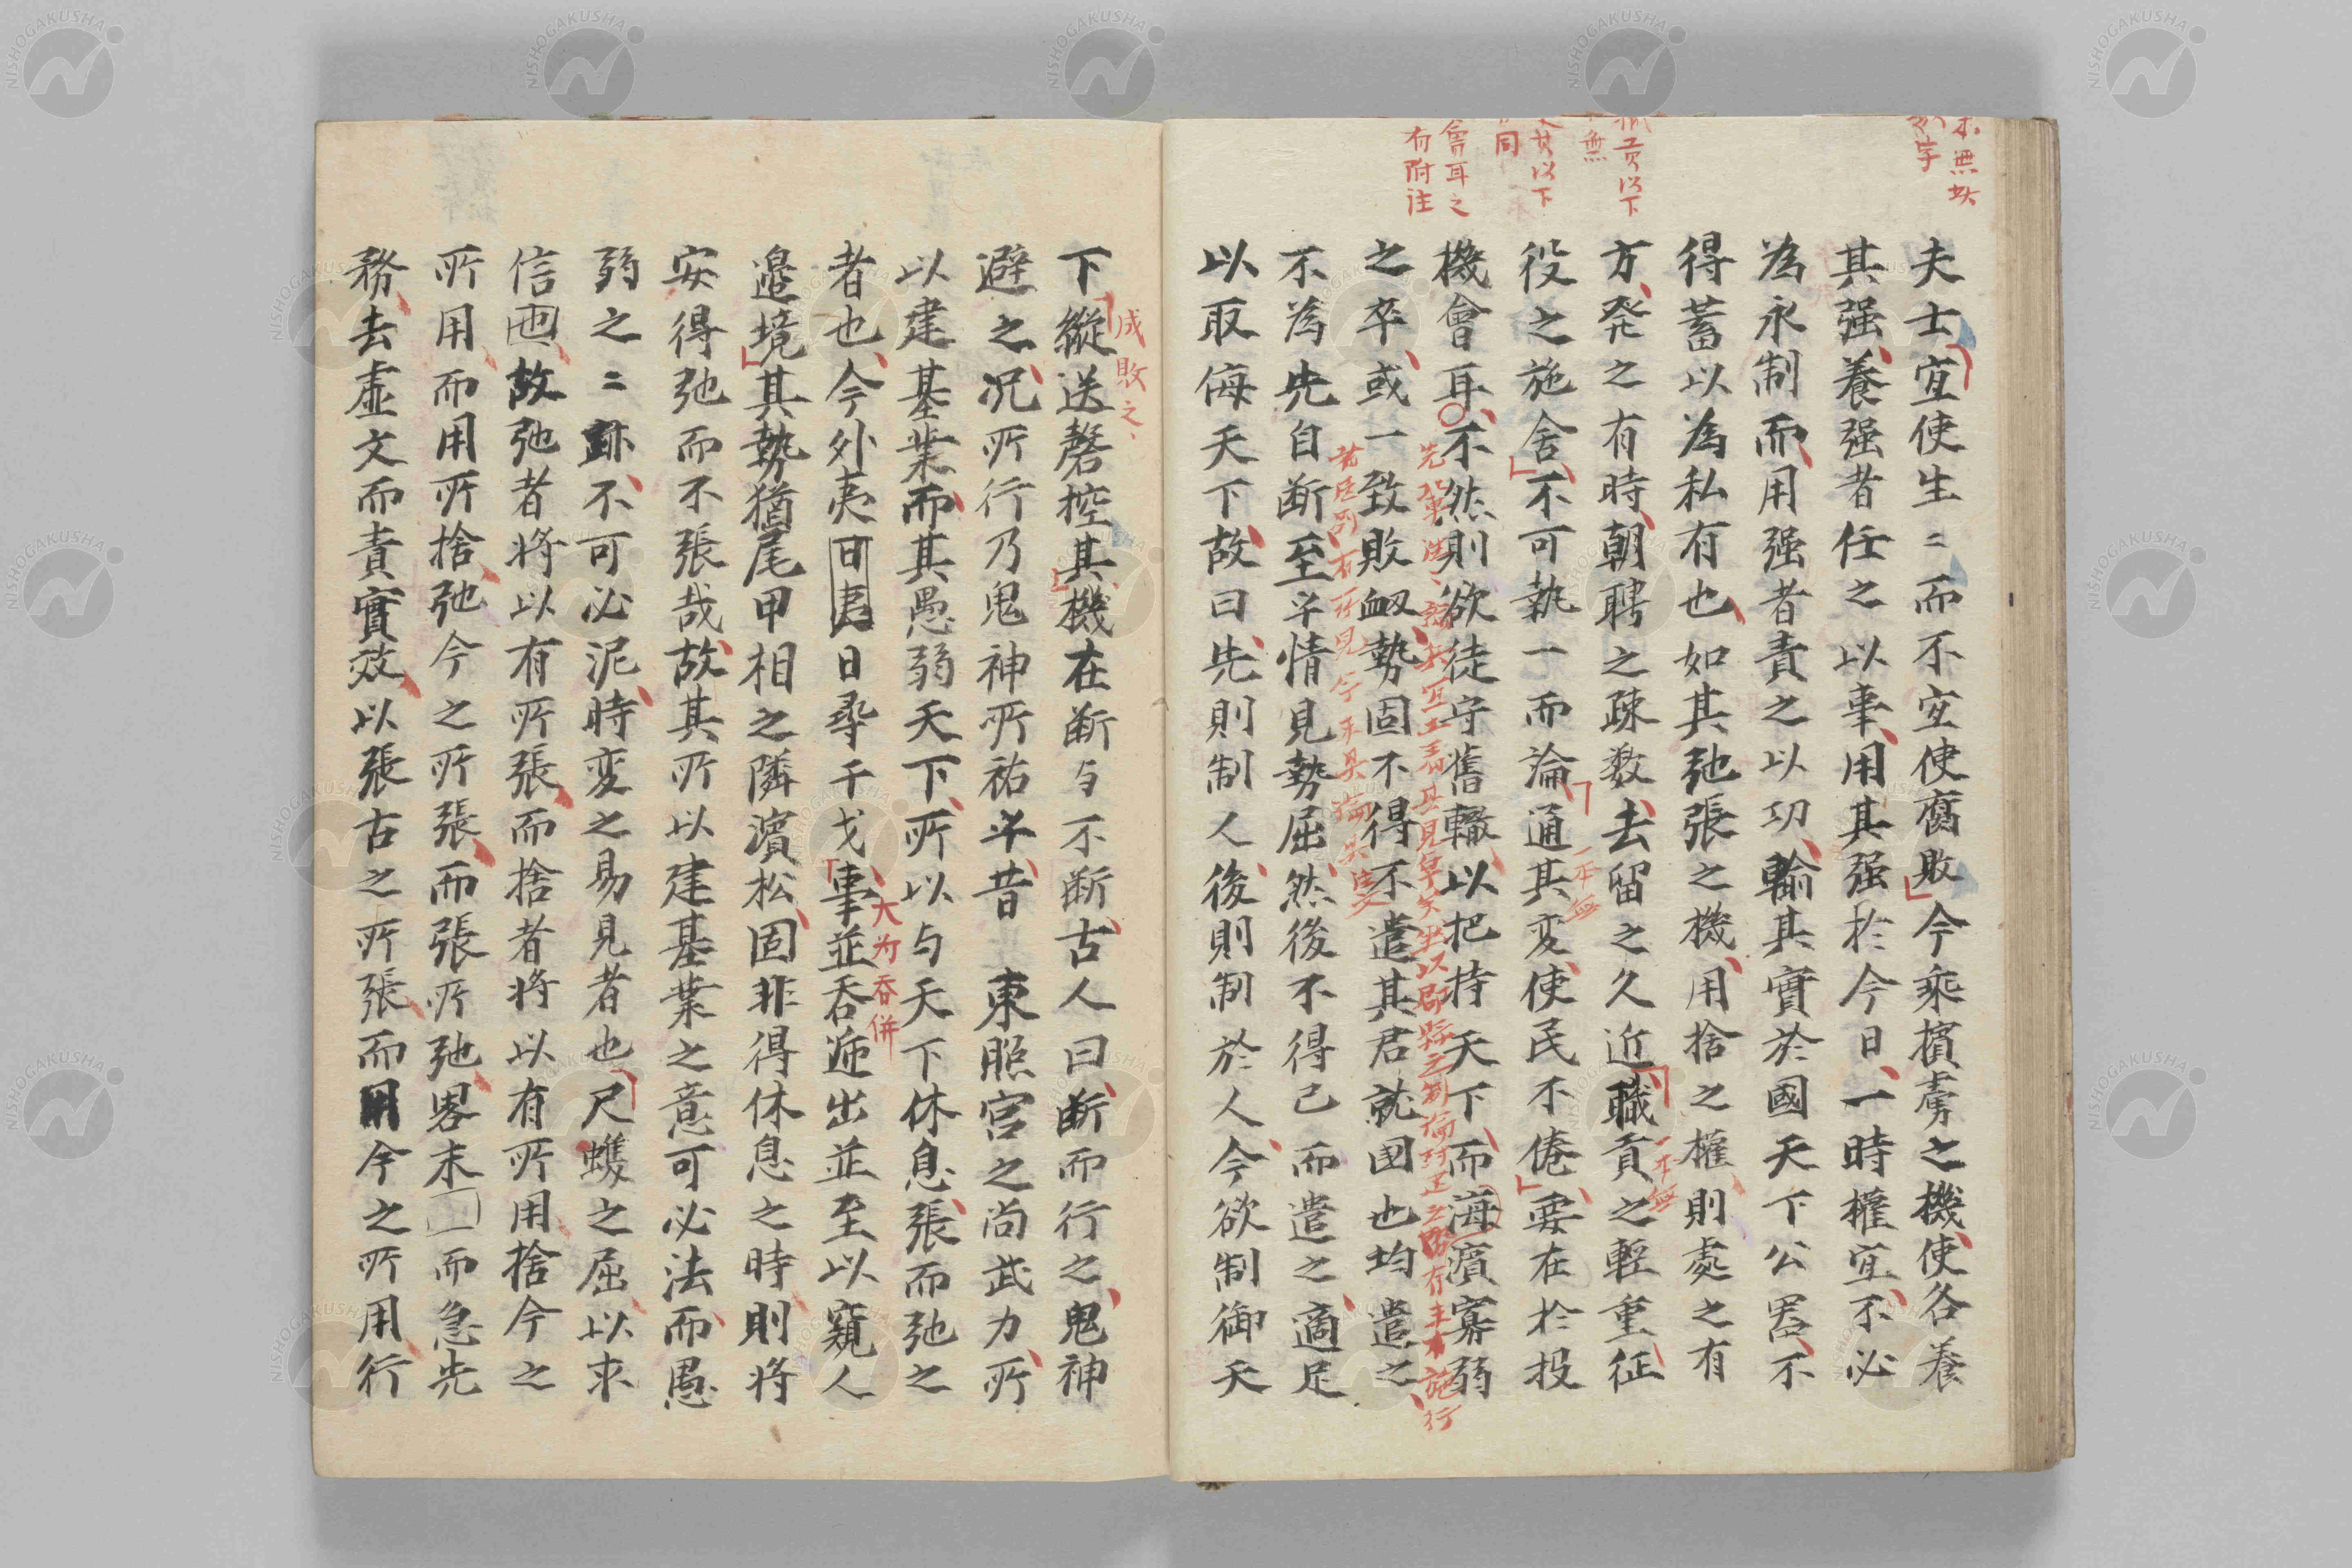 夫士宜使生〻而不宜使腐敗今乘擯虜之機使各養
其强養强者任之以事用其强於今日一時權宜不必
為永制而用强者責之以功輸其實於國天下公器不
得蓄以為私有也如其弛張之機用捨之權則處之有
方発之有時朝聘之疎数去留之久近職貢之輕重征
役之施舍不可執一而論通其変使民不倦要在於投
機會耳不然則欲徒守舊轍以把持天下而海濱寡弱
之卒或一致敗衂勢固不得不遣其君就国也均遣之
不為先自断至乎情見勢屈然後不得已而遣之適足
以取侮天下故曰先則制人後則制於人今欲制御天
下縱送磬控其機在断与不断古人曰断而行之鬼神
避之况所行乃鬼神所祐乎昔 東照宮之尚武力所
以建基業而其愚弱天下所以与天下休息張而弛之
者也今外夷日尋干戈事並吞逓出並至以窺人
邉境其勢猶尾甲相之隣濱松固非得休息之時則将
安得弛而不張哉故其所以建基業之意可必法而愚
弱之〻跡不可必泥時変之易見者也尺蠖之屈以求
信也故弛者将以有所張而捨者将以有所用捨今之
所用而用所捨弛今之所張而張所弛畧末而急先
務去虚文而責實效以張古之所張而用今之所用行
成敗之
大為吞併
一本無
一本無
會耳之
有附注
職貢以下